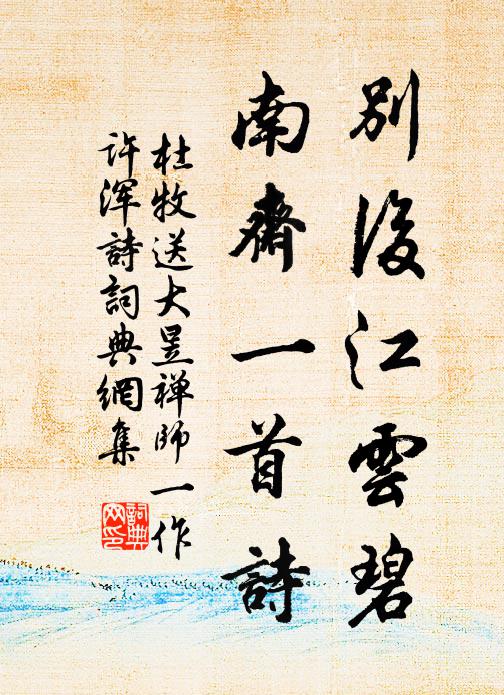 別後江雲碧
南齋一首詩
杜牧送大昱禅師一作
许渾詩詞典網集
詞典
网印